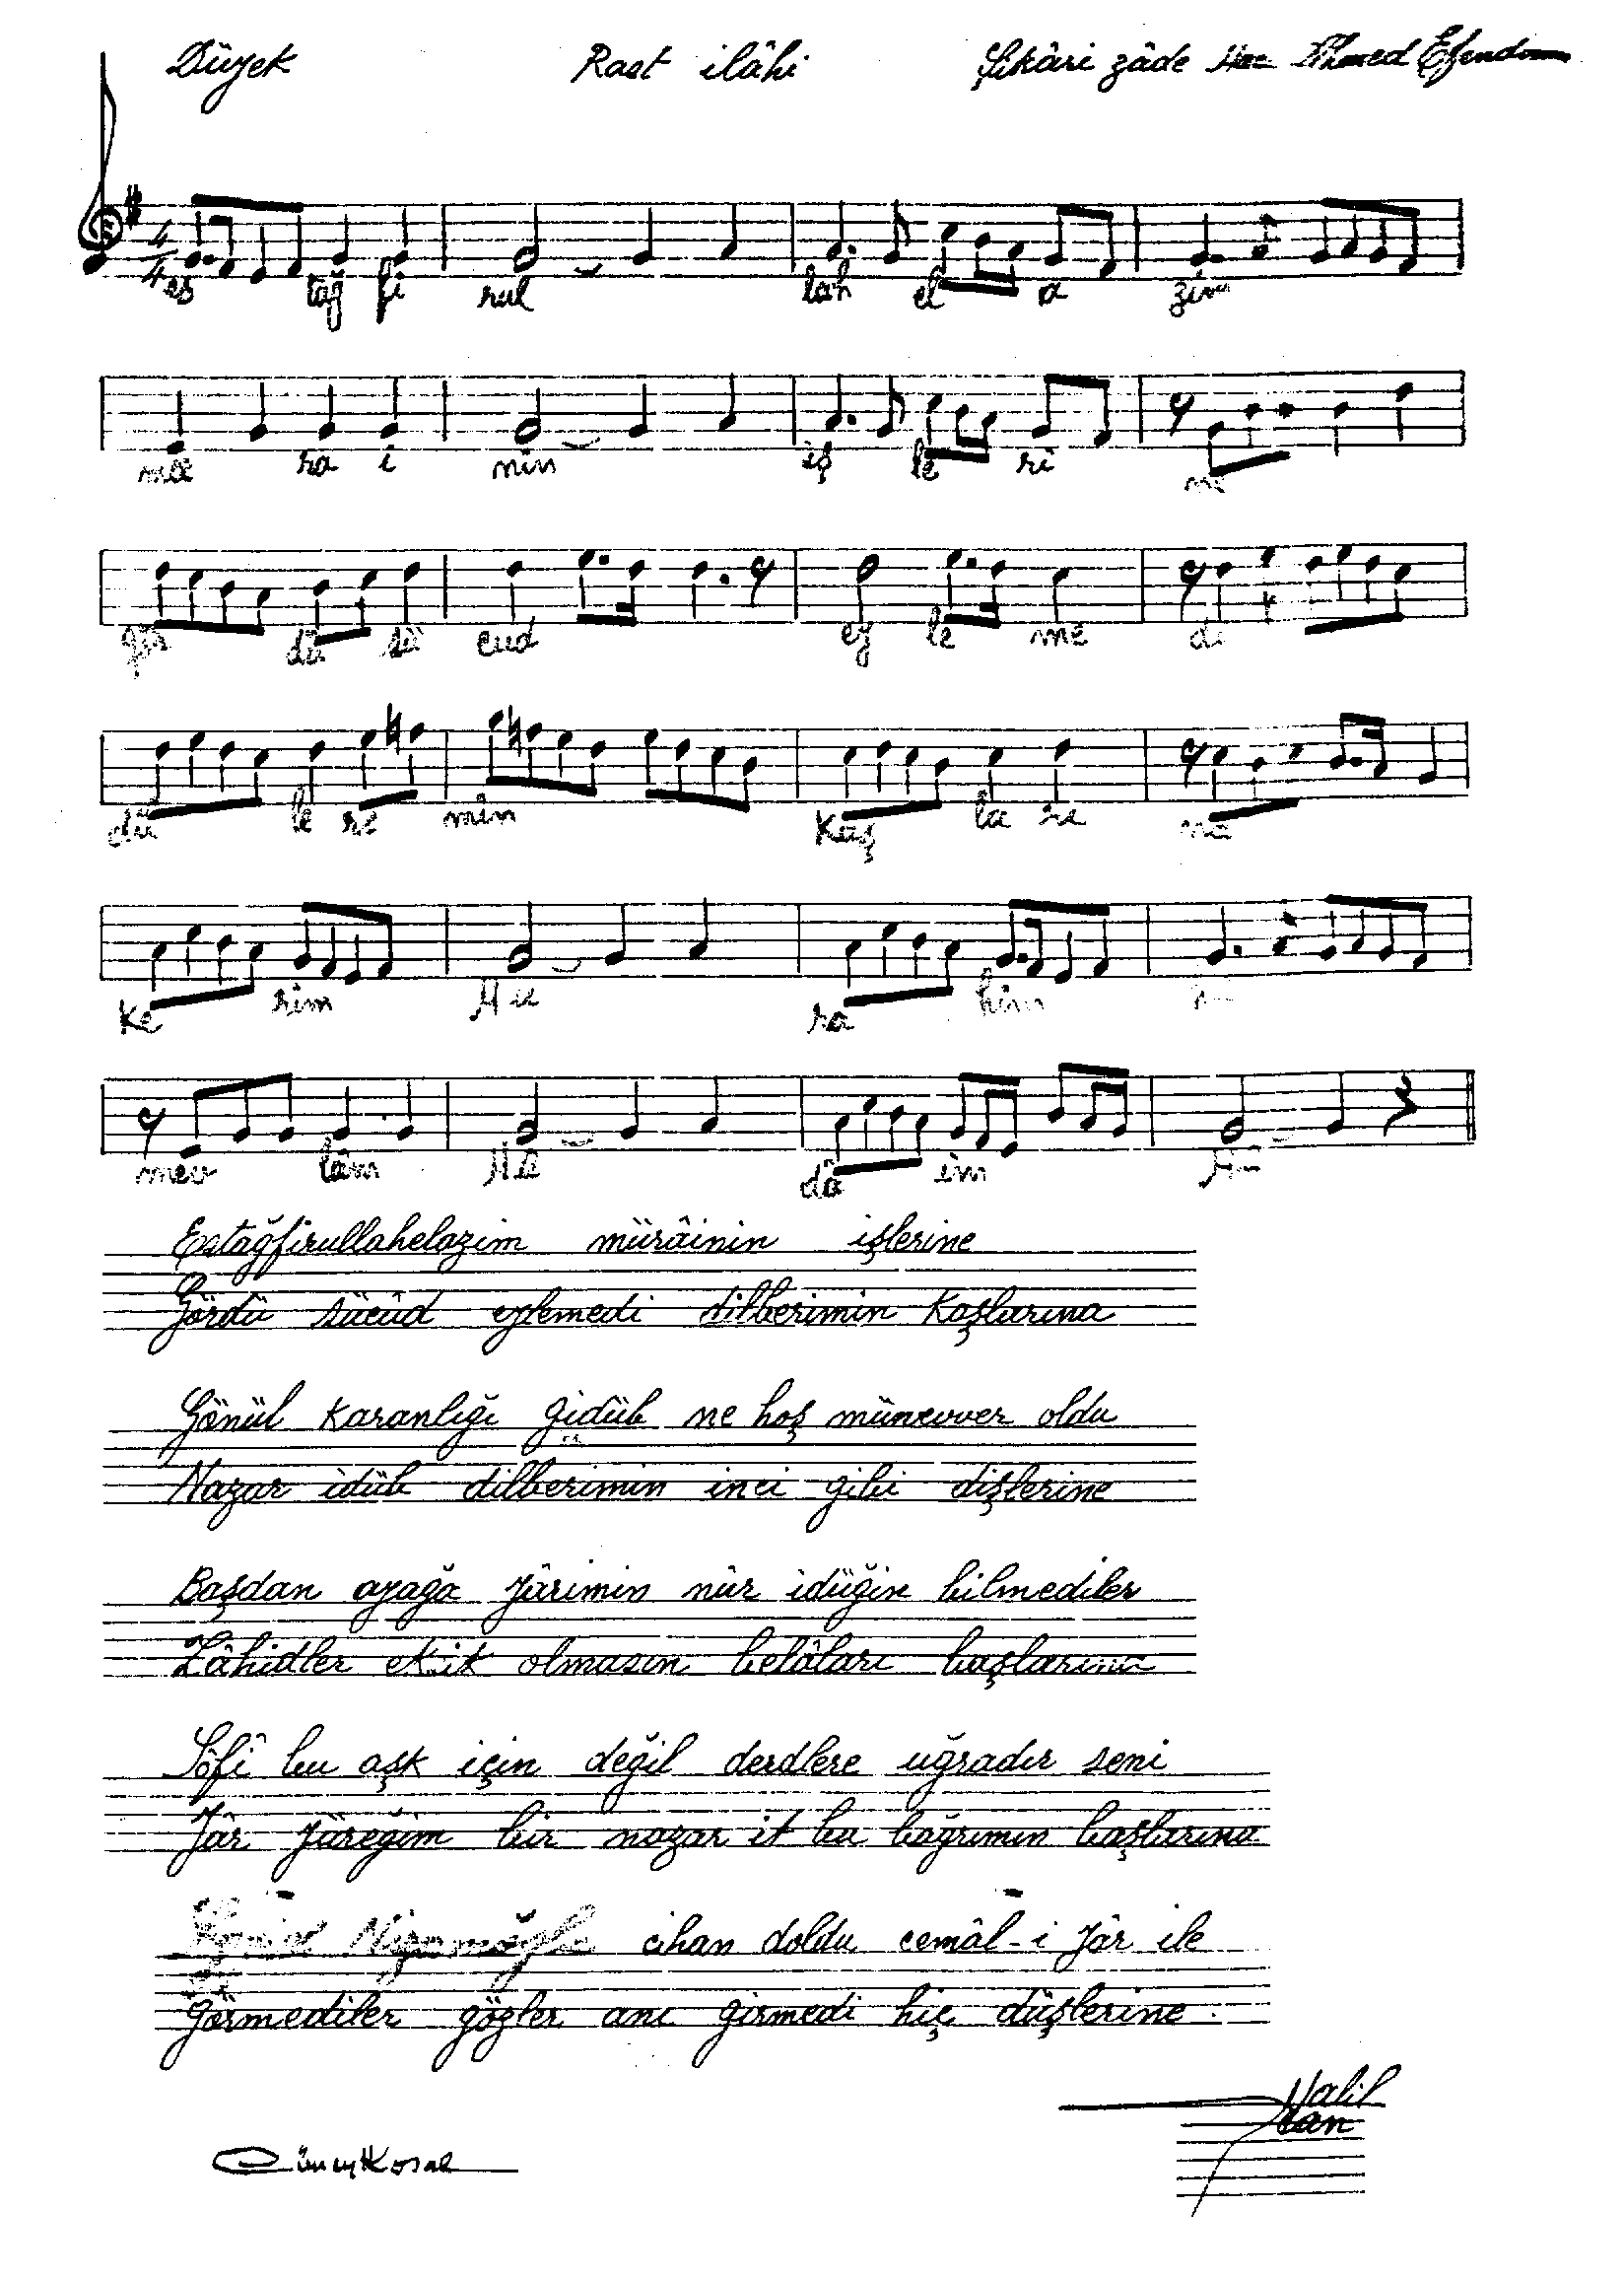 Düyek Rast ilâhi Şikâri zâde Ahmed Efendi
4/4 es tağ fi rul lah el a zim
mü ra i nin iş le ri ne
gör dü sü cud ey le me di
dil be ri min kaş la rı na
Ke rim Hu ra him
mev lâm Hû dâ im Hû
Estağfirullahelazim mürâinin işlerine
Gördü sücûd eylemedi dilberimin Kaşlarına
Gönül karanlığı gidüb ne hoş münevver oldu
Nazar idüb dilberimin inci gibi dişlerine
Başdan ayağa yârimin nûr idüğin bilmediler
Zâhidler eksik olmasın belâları başlarına
Sôfî bu aşk için değil derdlere uğradır seni
Yâr yüreğim bir nazar it bu bağrımın başlarına
Nizamoğlu cihan doldu cemâl-i yâr ile
Görmediler gözler anı girmedi hiç düşlerine
Halil
Can
Cüneyt Kosal